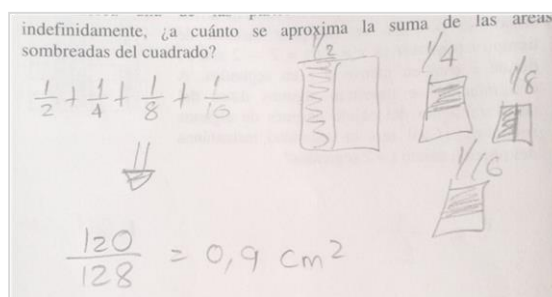 indefinidamente, ¿a cuánto se aproxima la suma de las áreas
sombreadas del cuadrado?
1/2
1/4
1/8
1/2 + 1/4 + 1/8 + 1/16
1/16
120/128 = 0,9 cm²